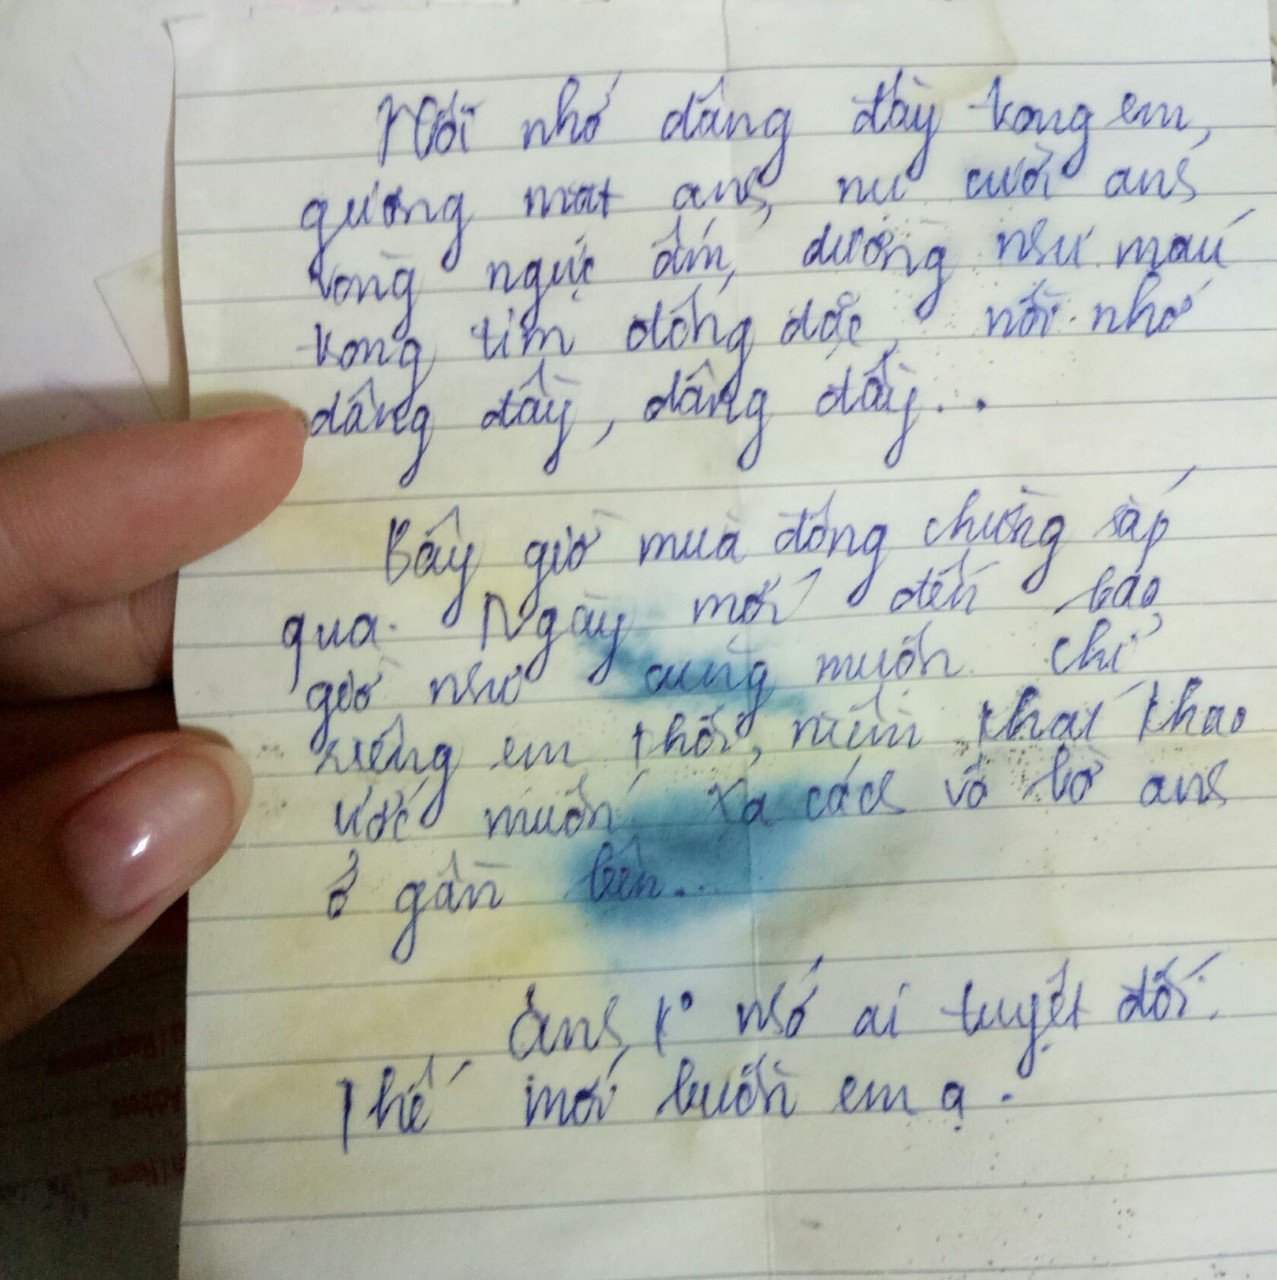 Nỗi nhớ dâng đầy trong em,
gương mặt anh, nụ cười anh
vòng ngực ấm, dường như máu
trong tim đông đặc, nỗi nhớ
dâng đầy, dâng đầy...
Bây giờ mùa đông chừng sắp
qua. Ngày mới đến bao
giờ như cũng muốn chỉ
riêng em thôi, niềm khát khao
ước muốn xa cách vô bờ anh
ở gần bên...
Anh, k° nhớ ai tuyệt đối.
Thế mới buồn em ạ.